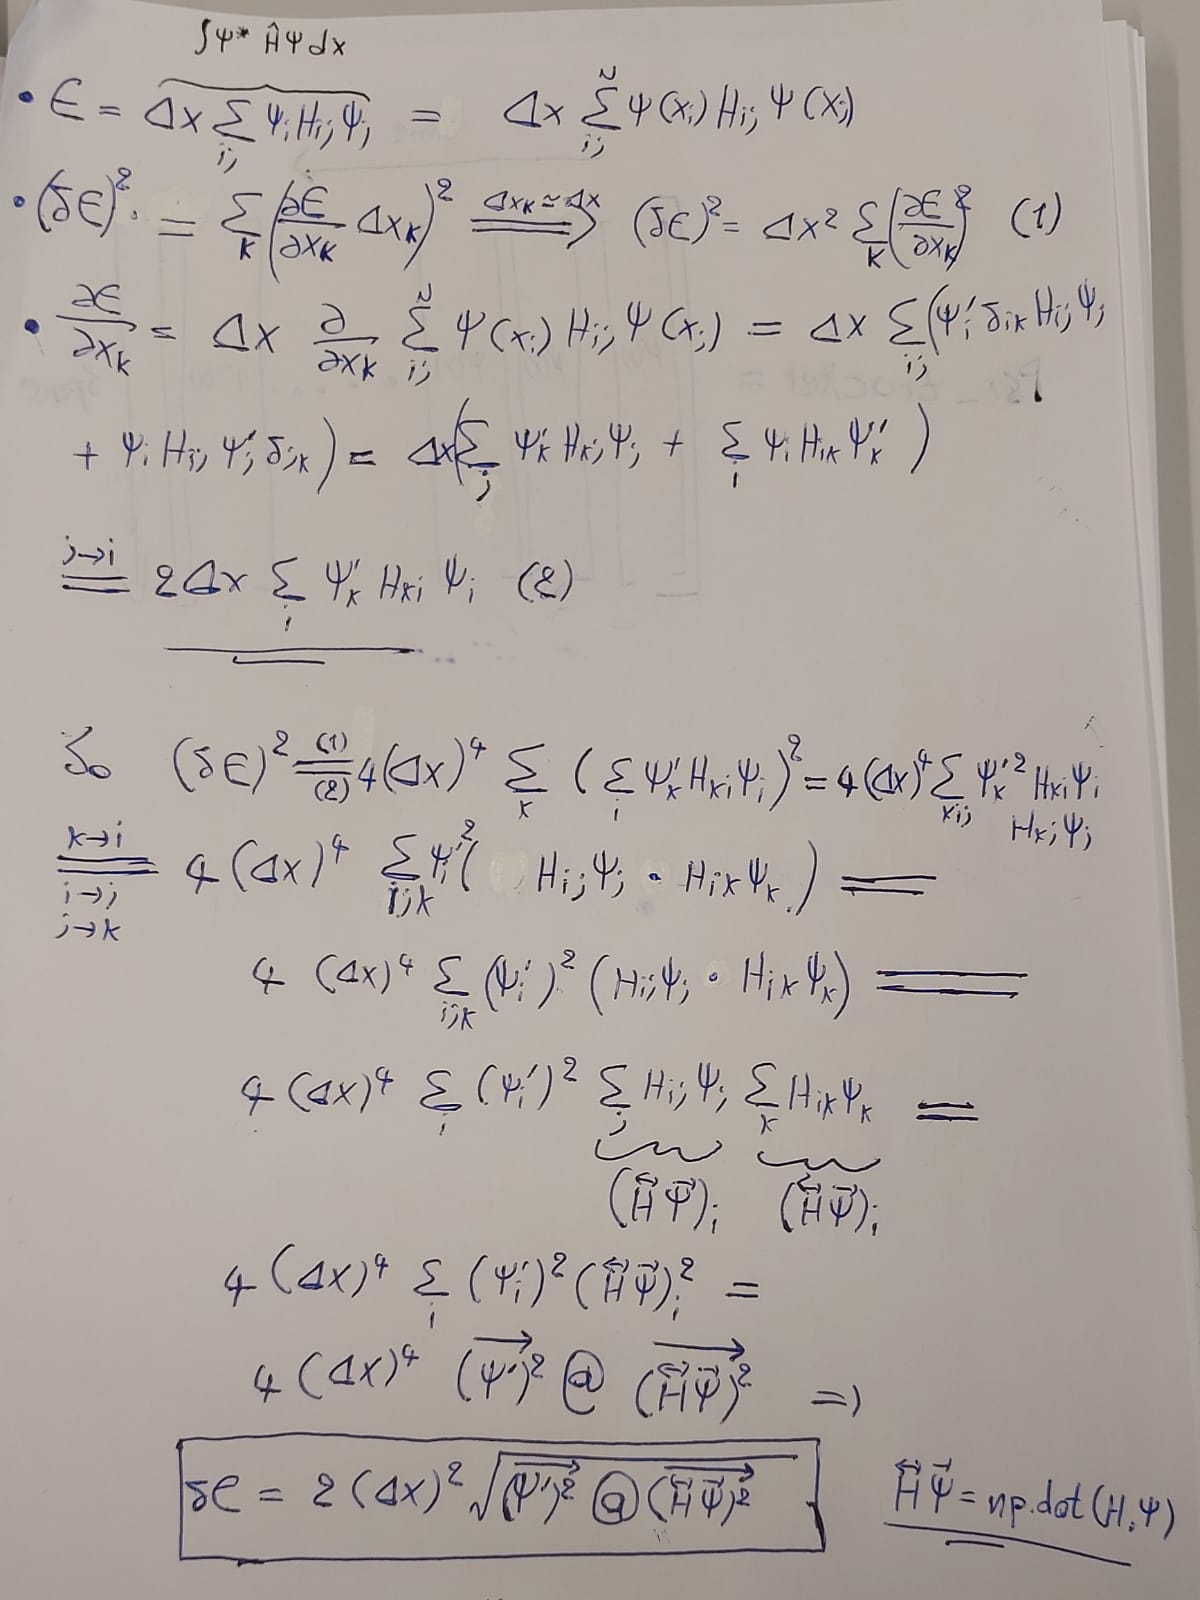 ∫Ψ* ĤΨdx
• ϵ = Δx Σ_ij Ψ_i H_ij Ψ_j = Δx Σ_ij^N Ψ(x_i) H_ij Ψ(x_j)
• (δϵ)² = Σ_k (∂ϵ/∂x_k Δx_k)² ⟹ (Δx_k ≃ Δx) (δϵ)² = Δx² Σ_k (∂ϵ/∂x_k)² (1)
• ∂ϵ/∂x_k = Δx ∂/∂x_k Σ_ij^N Ψ(x_i) H_ij Ψ(x_j) = Δx Σ_ij (Ψ'_i δ_ik H_ij Ψ_j
+ Ψ_i H_ij Ψ'_j δ_jk) = Δx(Σ_j Ψ'_k H_kj Ψ_j + Σ_i Ψ_i H_ik Ψ'_k)
j→i = 2Δx Σ_i Ψ'_k H_ki Ψ_i (2)
So (δϵ)² =(1)(2) 4(Δx)⁴ Σ_k (Σ_i Ψ'_k H_ki Ψ_i)² = 4(Δx)⁴ Σ_kij Ψ'_k² H_ki Ψ_i
H_kj Ψ_j
k→i i→j j→k = 4(Δx)⁴ Σ_ijk Ψ'_i² ( H_ij Ψ_j • H_ik Ψ_k ) =
4 (Δx)⁴ Σ_ijk (Ψ_i')² (H_ij Ψ_j • H_ik Ψ_k) =
4 (Δx)⁴ Σ_i (Ψ_i')² Σ_j H_ij Ψ_j Σ_k H_ik Ψ_k =
(H⃡Ψ⃗)_i (H⃡Ψ⃗)_i
4 (Δx)⁴ Σ_i (Ψ_i')² (H⃡Ψ⃗)_i² =
4 (Δx)⁴ (Ψ')² @ (H⃡Ψ⃗)² ⇒
δϵ = 2(Δx)² √((Ψ')² @ (H⃡Ψ⃗)²)
H⃡Ψ⃗ = np.dot(H,Ψ)